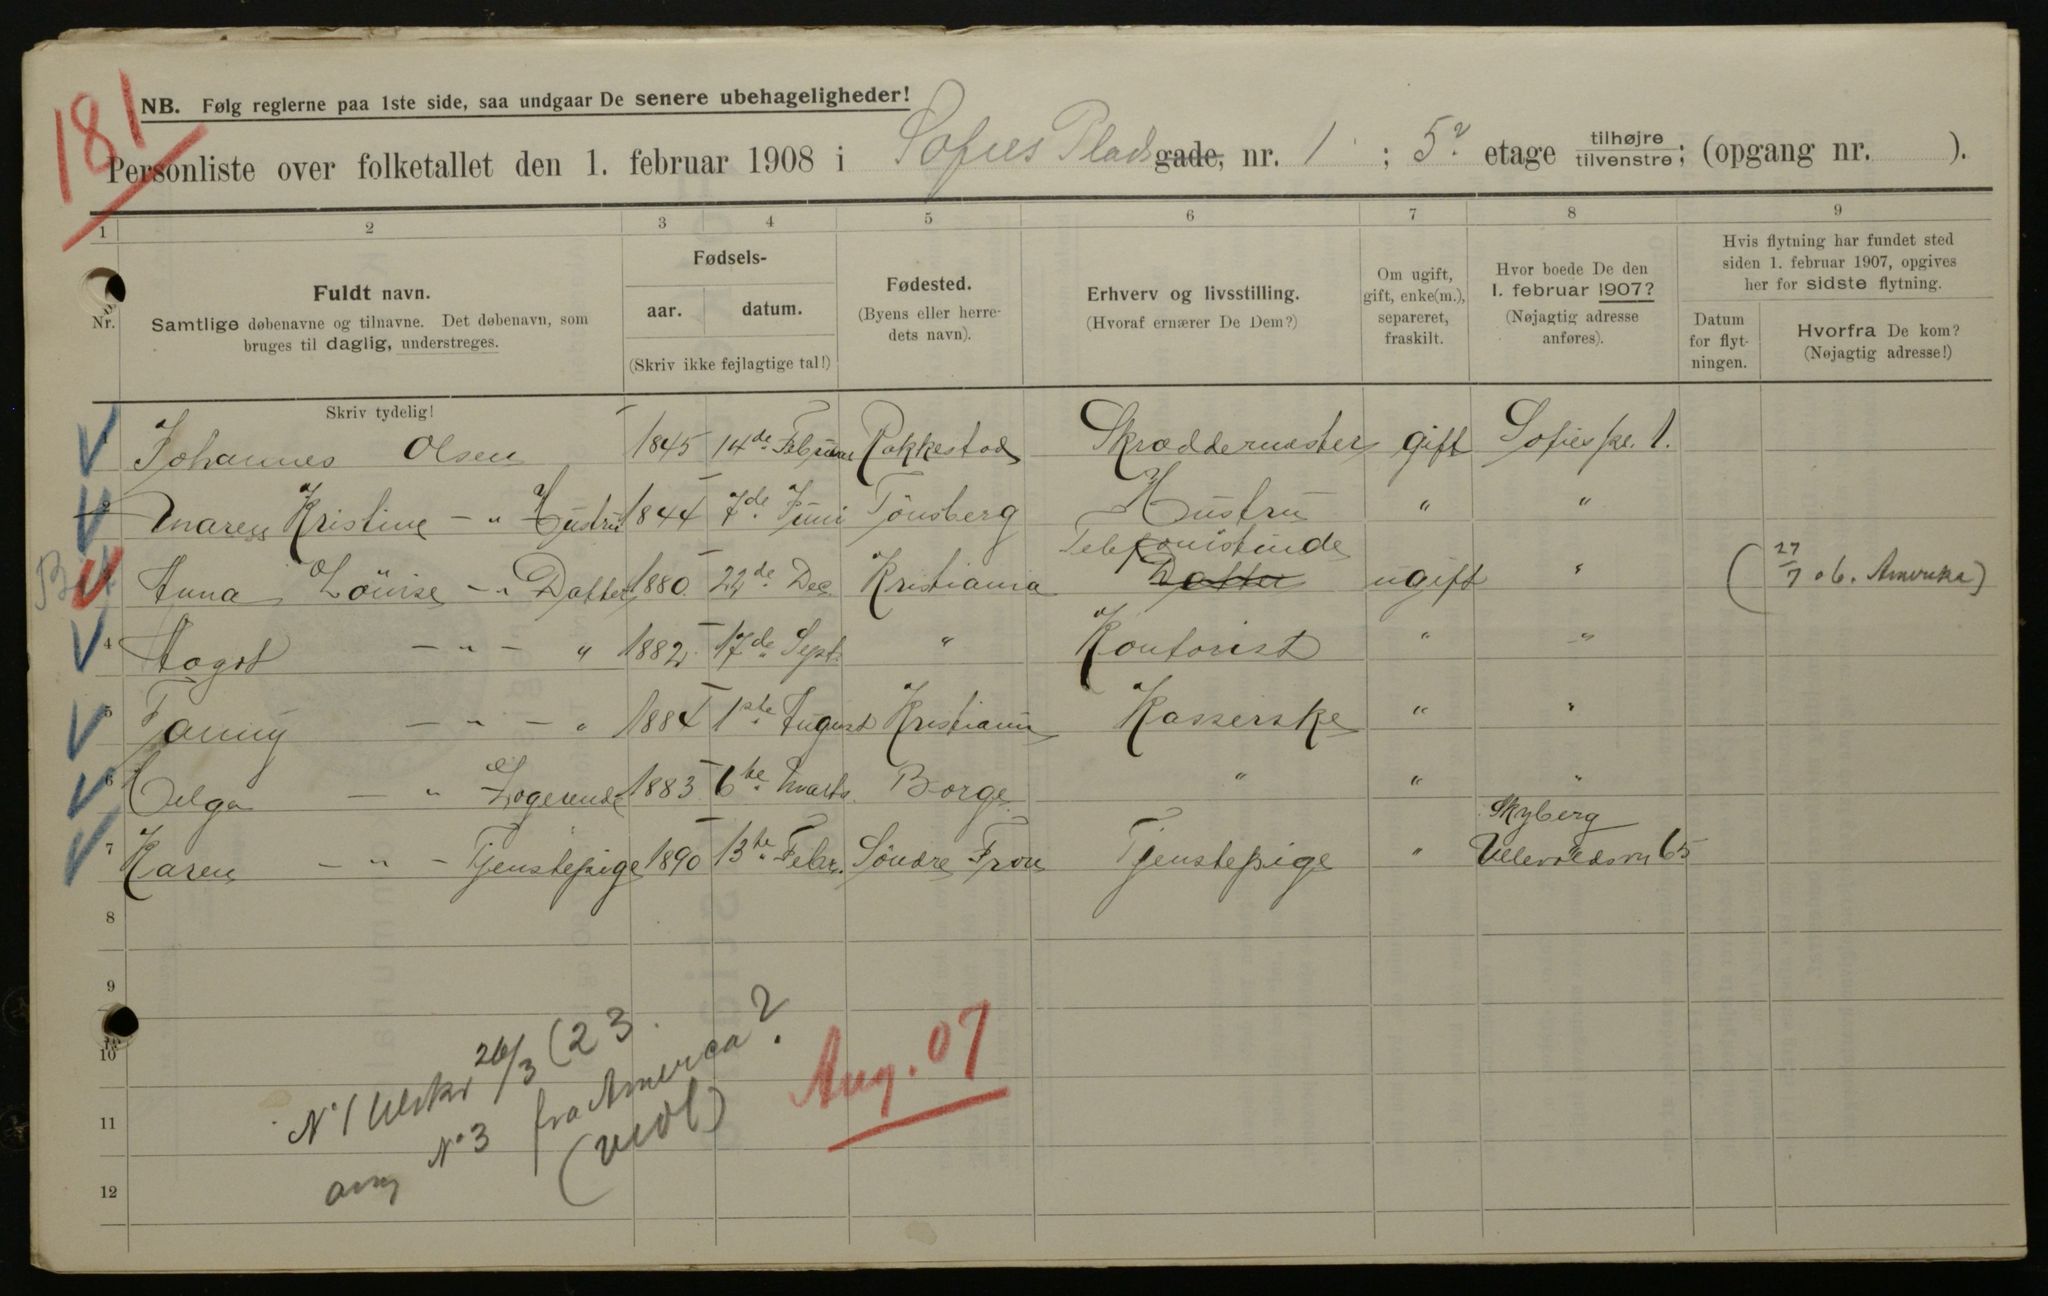 181
NB. Følg reglerne paa 1ste side, saa undgaar De senere ubehageligheder!
Personliste over folketallet den 1. februar 1908 i Sofies Plads gade, nr. 1 ; 5 etage tilhøjre tilvenstre; (opgang nr. ).
1 2 3 4 5 6 7 8 9
Nr.
Fuldt navn.
Samtlige døbenavne og tilnavne. Det døbenavn, som
bruges til daglig, understreges.
Skriv tydelig!
Fødsels-
aar. datum.
(Skriv ikke fejlagtige tal!)
Fødested.
(Byens eller herre-
dets navn).
Erhverv og livsstilling.
(Hvoraf ernærer De Dem?)
Om ugift,
gift, enke(m.),
separeret,
fraskilt.
Hvor boede De den
1. februar 1907?
(Nøjagtig adresse
anføres).
Hvis flytning har fundet sted
siden 1. februar 1907, opgives
her for sidste flytning.
Datum
for flyt-
ningen.
Hvorfra De kom?
(Nøjagtig adresse!)
1 Johannes Olsen 1845 14de Februar Rakkestad Skræddermester gift Sofies pl. 1.
2 Maren Kristine - " Hustru 1844 7de Juni Tönsberg Hustru " "
Telefonistinde
Anna Louise - " Datter 1880 22de Dec. Kristiania Datter ugift " ( 27/7 06. Amerika)
4 Aagot - " - " 1882 17de Sept. " Kontorist " "
5 Fanny - " - " 1884 1ste August Kristiania Kasserske " "
6 Helga - " Logerende 1883 6te Marts Borge " " "
Skyberg
7 Karen - " - Tjenstepige 1890 13te Febr. Söndre Fron Tjenstepige " Ullevoldsvn 65
8
9
10
11
12
N° 1 26/3 (23
N° 3 fra America?
Aug. 07